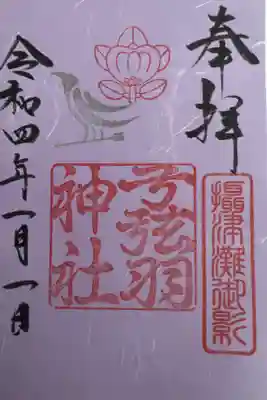 奉拝
攝津灘御影
弓弦羽
神社
令和四年一月一日